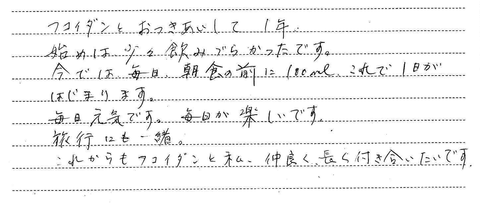 フコイダンとおつきあいして1年.
始めは少々飲みづらかったです。
今では毎日、朝食の前に100ml、これで1日が
はじまります。
毎日元気です。毎日が楽しいです。
旅行にも一緒。
これからもフコイダンと私、仲良く、長く付き合いたいです.